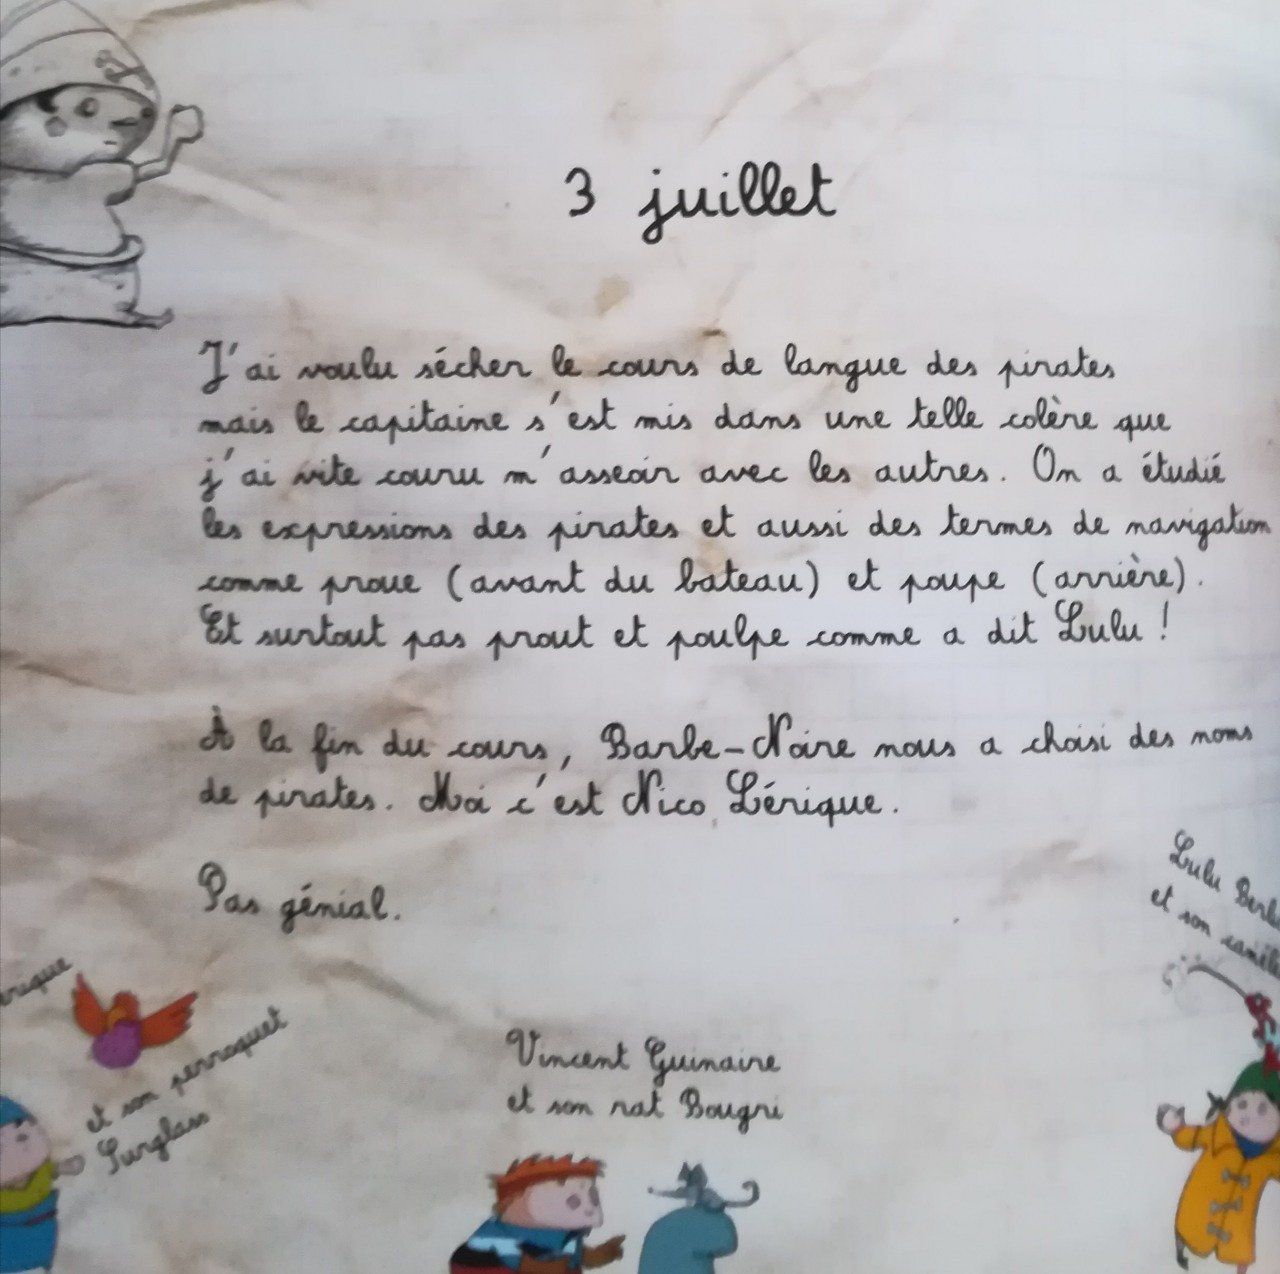 3 juillet
J'ai voulu sécher le cours de langue des pirates
mais le capitaine s'est mis dans une telle colère que
j'ai vite couru m'asseoir avec les autres. On a étudié
les expressions des pirates et aussi des termes de navigation
comme proue (avant du bateau) et poupe (arrière).
Et surtout pas prout et poulpe comme a dit Lulu !
À la fin du cours, Barbe-Noire nous a choisi des noms
de pirates. Moi c'est Nico Lérique.
Pas génial.
Lulu
et son
et son perroquet
Surglass
Vincent Guinaire
et son rat Bougri